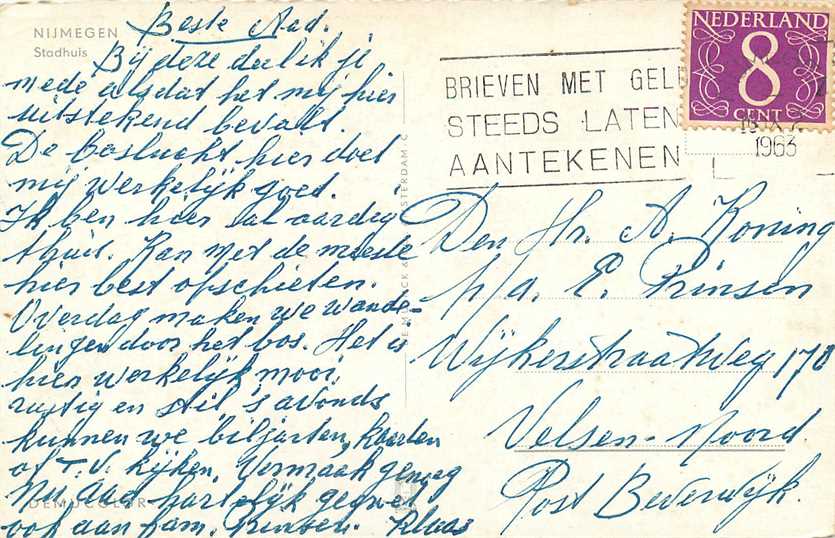 NIJMEGEN
Stadhuis
Beste Aad.
Bij deze deel ik je
mede als dat het mij hier
uitstekend bevalt.
De boslucht hier doet
mij werkelijk goed.
Ik ben hier al aardeg
thuis. Kan met de meeste
hier best opschieten.
Overdag maken we wande-
lingen door het bos. Het is
hier werkelijk mooi,
rustig en stil, 's avonds
kunnen we biljarten, kaarten
of T.V. kijken. Vermaak genoeg
Nu Aad hartelijk
ook aan fam. Prinsen. Klaas
DEMUCOLOR
AMSTERDAM C
NEDERLAND
8
CENT
BRIEVEN MET GELD
STEEDS LATEN
AANTEKENEN
1963
Den Hr. A. Koning
p/a. E. Prinsen
Wijkerstraatweg 170
Velsen-Noord
Post Beverwijk.